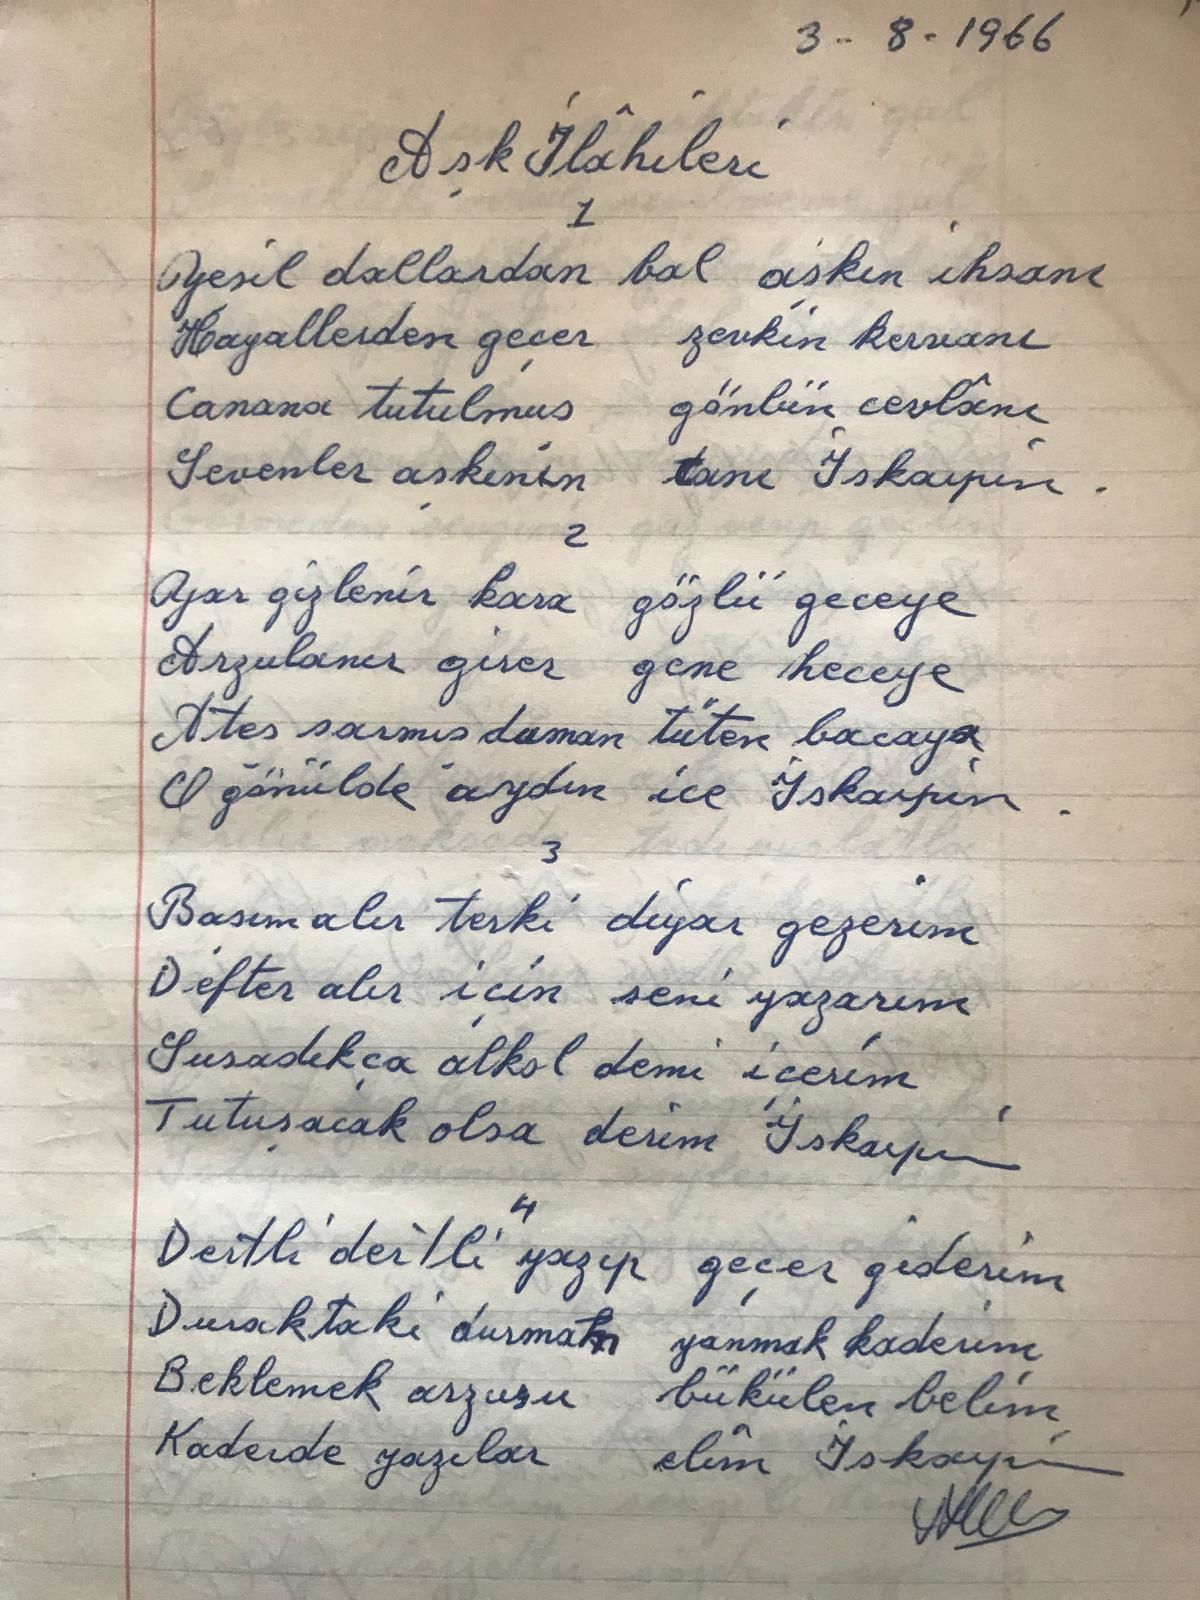 3 - 8 - 1966
Aşk İlâhileri
1
Yeşil dallardan bal aşkın ihsanı
Hayallerden geçer zevkin kervanı
Canana tutulmuş gönlün cevlânı
Sevenler aşkının tanı İskarpin .
2
Yar gizlenir kara gözlü geceye
Arzulanır girer gene heceye
Ateş sarmış duman tüten bacaya
O gönülde aydın ice İskarpin .
3
Basım alır terki diyar gezerim
Defter alır için seni yazarım
Susadıkça alkol demi içerim
Tutuşacak olsa derim İskarpin
4
Dertli dertli yazıp geçer giderim
Duraktaki durmak yanmak kaderim
Beklemek arzusu bükülen belim
Kaderde yazılar elim İskarpin